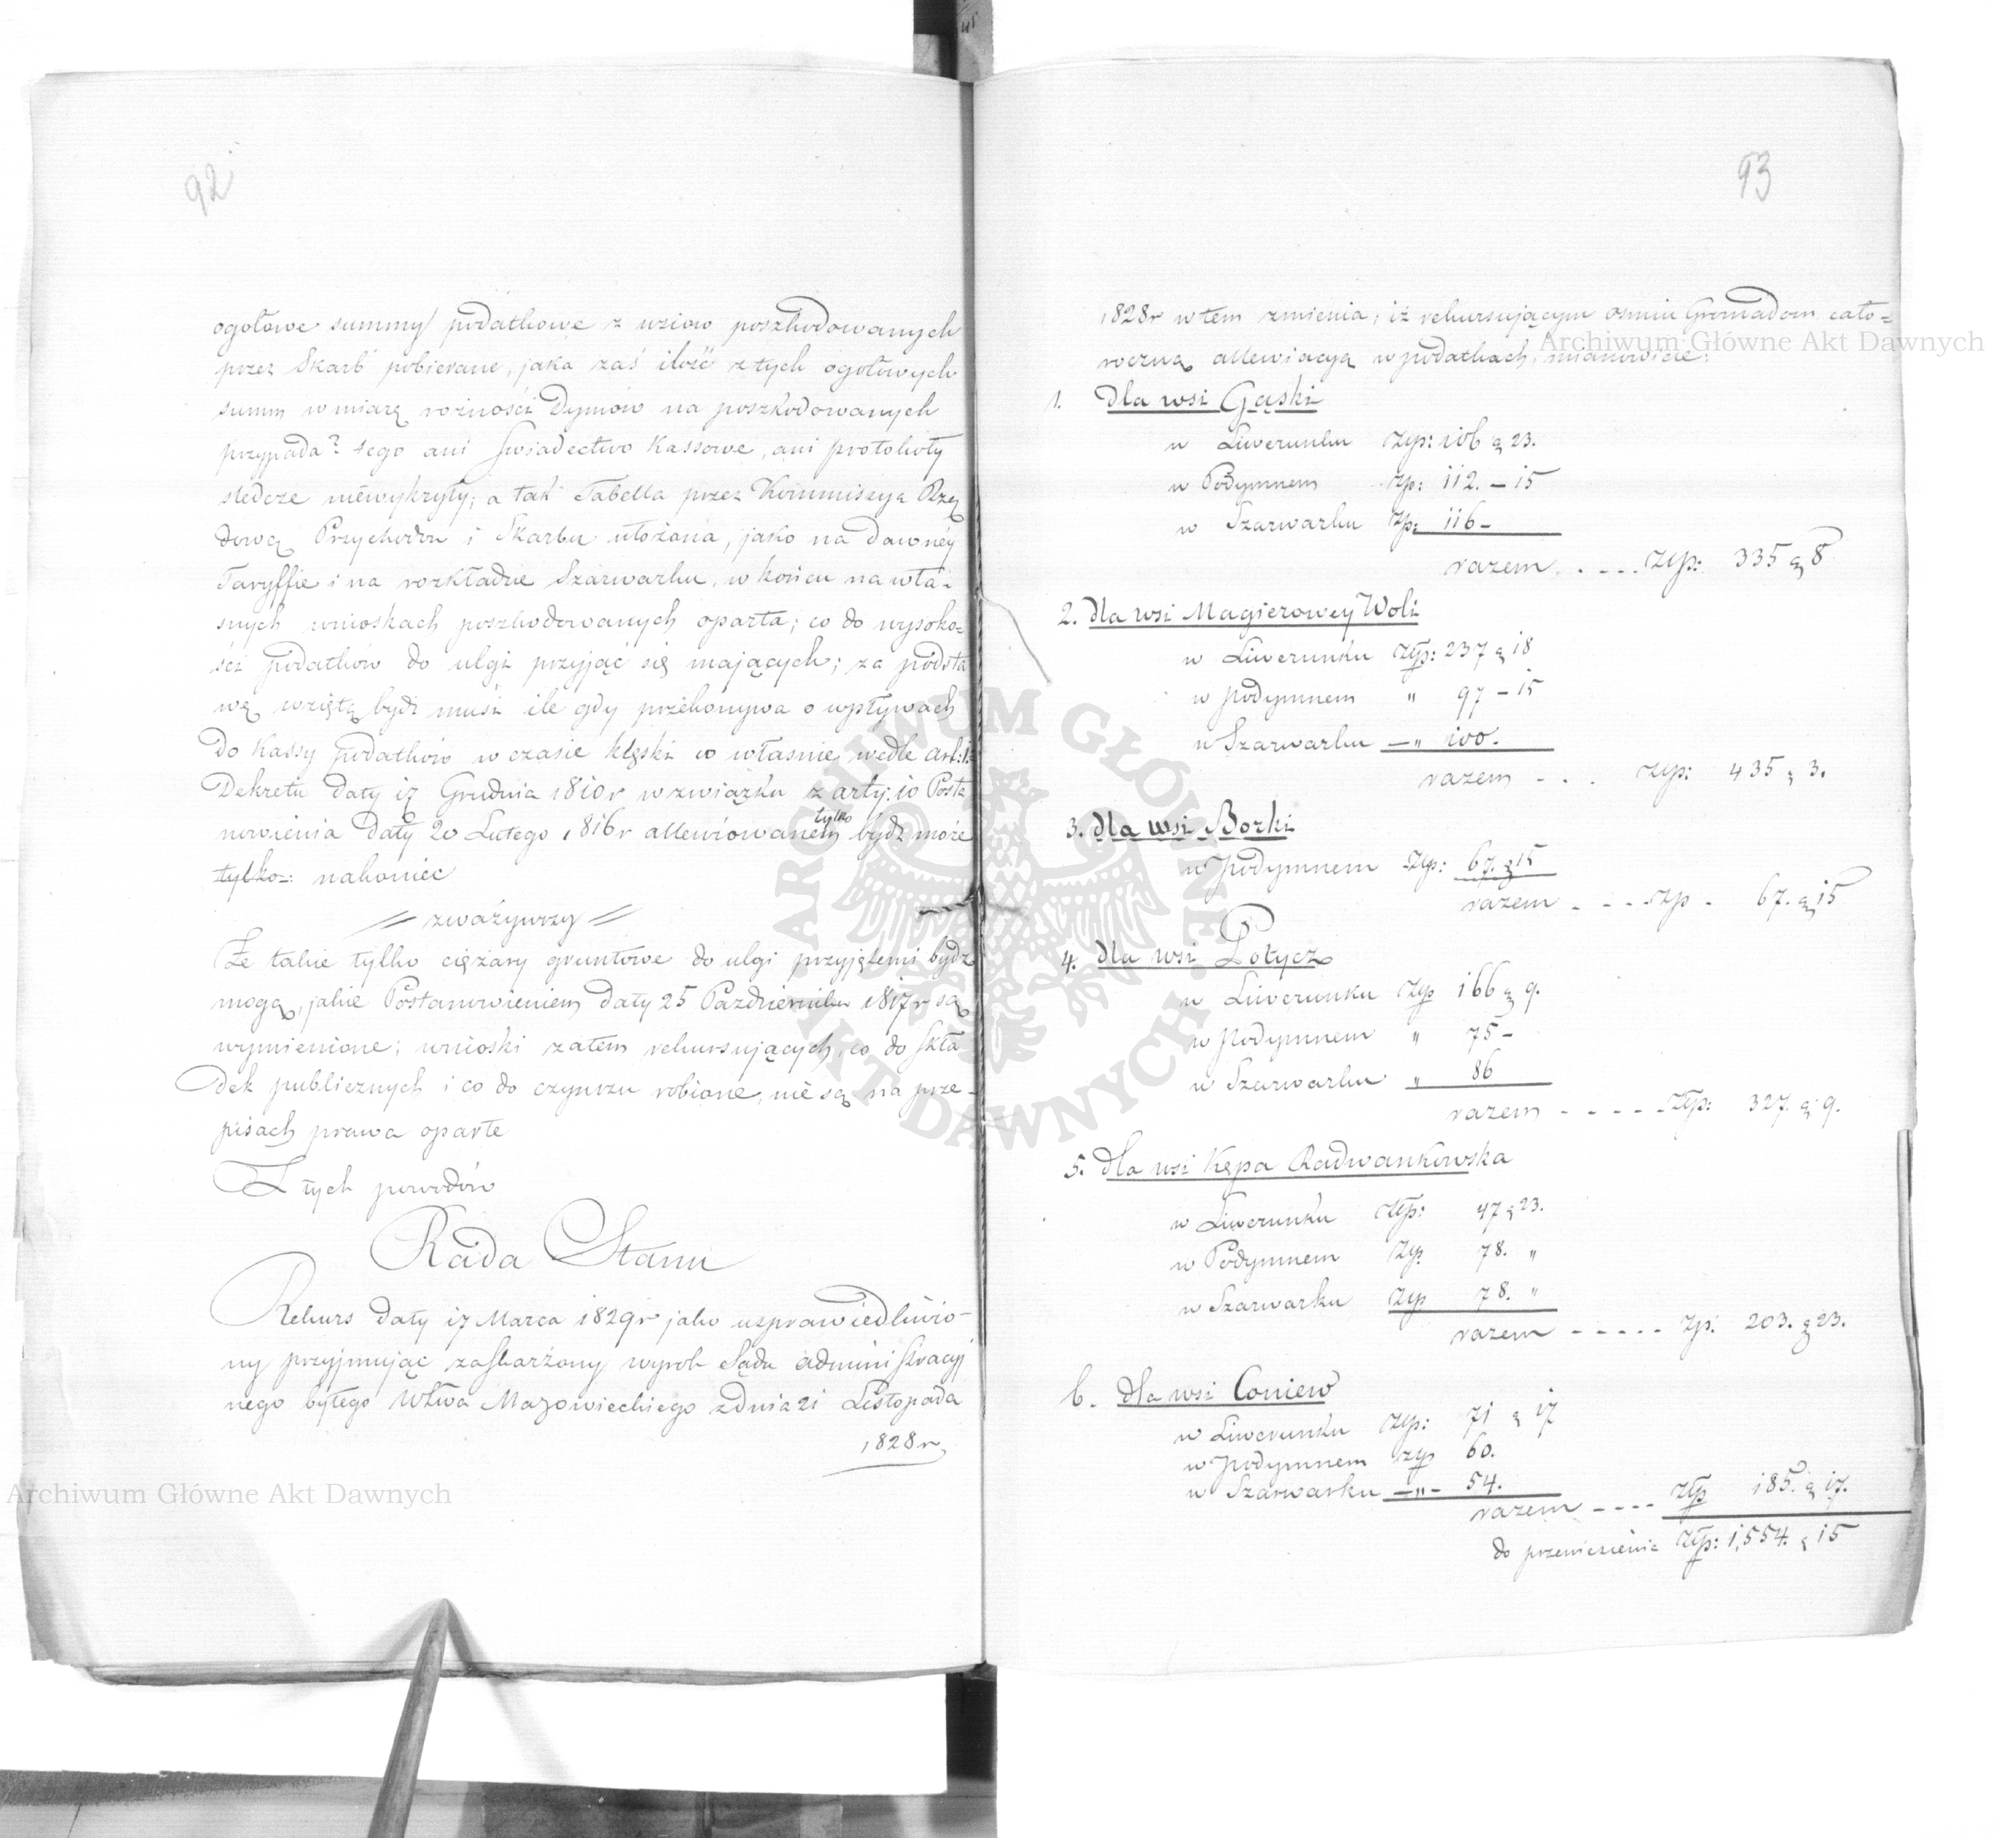 92
ogołowe summy podatkowe z wsiow poszkodowanych
przez Skarb pobierane, jaka zaś ilość z tych ogołowych
summ w miarę rożności Dymów na poszkodowanych
przypada? tego ani Swiadectwo Kassowe, ani protokóły
śledcze niewykryły; a tak Tabella przez Kommissyą Rzą
dową Przychodow i Skarbu ułożona, jako na dawnéy
Taryffie i na rozkładzie Szarwarku, w końcu na wła-
snych wnioskach poszkodowanych oparta; co do wysoko=
ści podatków do ulgi przyjąć się mających; za podsta
wę wziętą bydź musi ile gdy przekonywa o wpływach
do Kassy podatków w czasie klęski co własnie wedle art: 1.
Dekretu daty 17 Grudnia 1810r w związku z arty: 10 Posta
nowienia daty 20 Lutego 1816r allewiowanem tylko bydź może
tylko: nakoniec
zważywszy
Że takie tylko ciężary gruntowe do ulgi przyjętemi bydź
mogą, jakie Postanowieniem daty 25 Pazdziernika 1817r są
wymienione; wnioski zatem rekursujących, co do skła
dek publicznych i co do czynszu robione, nie są na prze-
pisach prawa oparte
Z tych powodów
Rada Stanu
Rekurs daty 17 Marca 1829r jako usprawiedliwio-
ny przyjmując zaskarżony wyrok Sądu administracyj
nego byłego Wztwa Mazowieckiego z dnia 21 Listopada
1828r
93
1828r w tem zmienia; iż rekursującym osmiu Gromadom cało=
roczną allewiacyą w podatkach, mianowicie:
1. dla wsi Gąski
w Liwerunku Złp: 106 g 23.
w Podymnem Złp: 112. – 15
w Szarwarku Złp: 116 –
razem . . . . Złp: 335 g 8
2. dla wsi Magierowey Woli
w Liwerunku Złp: 237 g 18
w Podymnem " 97 – 15
w Szarwarku – " 100.
razem - . . Złp: 435 g 3.
3. dla wsi Borki
w Podymnem Złp: 67. g 15
razem . - - - Złp - 67. g 15
4. dla wsi Potycz
w Liwerunku Złp 166 g 9.
w Podymnem " 75 –
w Szarwarku " 86
razem - - - - - Złp: 327. g 9.
5. dla wsi Kępa Radwankowska
w Liwerunku Złp: 47 g 23.
w Podymnem Złp 78. "
w Szarwarku Złp 78. "
razem - - - - - Złp. 203. g 23.
6. dla wsi Coniew
w Liwerunku Złp: 71 g 17
w Podymnem Złp 60.
w Szarwarku – " – 54.
razem - - - - Złp 185. g 17.
do przeniesienia Złp: 1,554. g 15
Archiwum Główne Akt Dawnych
Archiwum Główne Akt Dawnych
ARCHIWUM GŁÓWNE AKT DAWNYCH